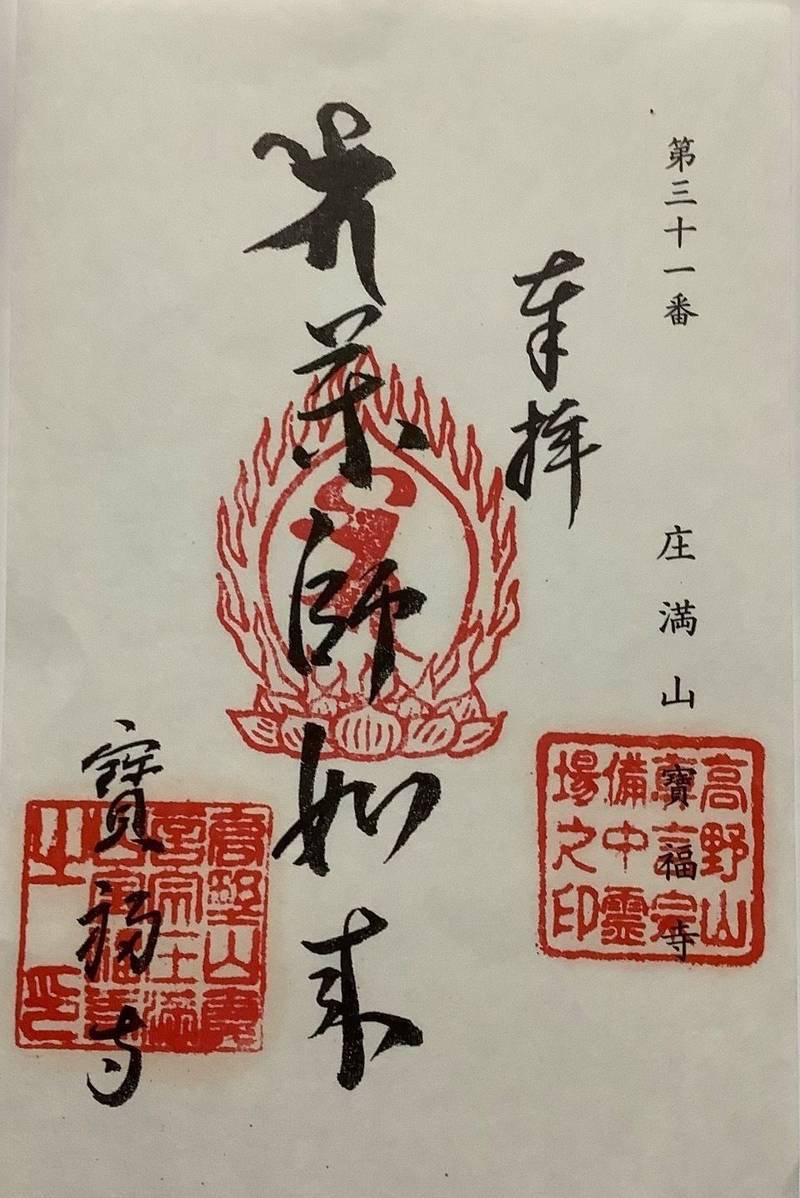 第三十一番 庄満山 寶福寺
高野山
真言宗
備中霊
場之印
奉拝
薬師如来
寶福寺
高野山真
言宗庄満
山宝福寺
之印